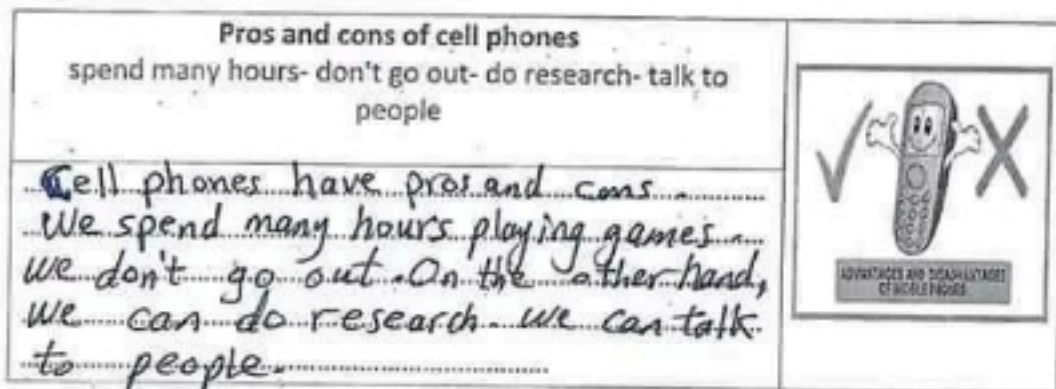 Pros and cons of cell phones
spend many hours- don't go out- do research- talk to
people
Cell phones have pros and cons.
We spend many hours playing games.
we don't go out. On the other hand,
we can do research. we can talk
to people.
ADVANTAGES AND DISADVANTAGES
OF MOBILE PHONES